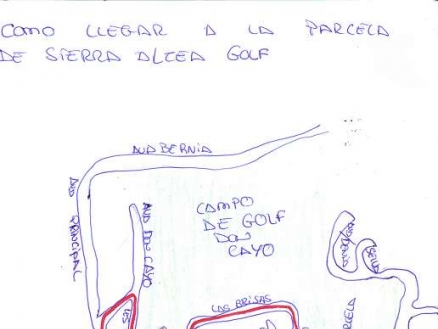 COMO LLEGAR A LA PARCELA
DE SIERRA ALTEA GOLF
AVD BERNIA
AVD PRINCIPAL
AVD DON CAYO
CAMPO
DE GOLF
DON
CAYO
LAS BRISAS
PARCELA